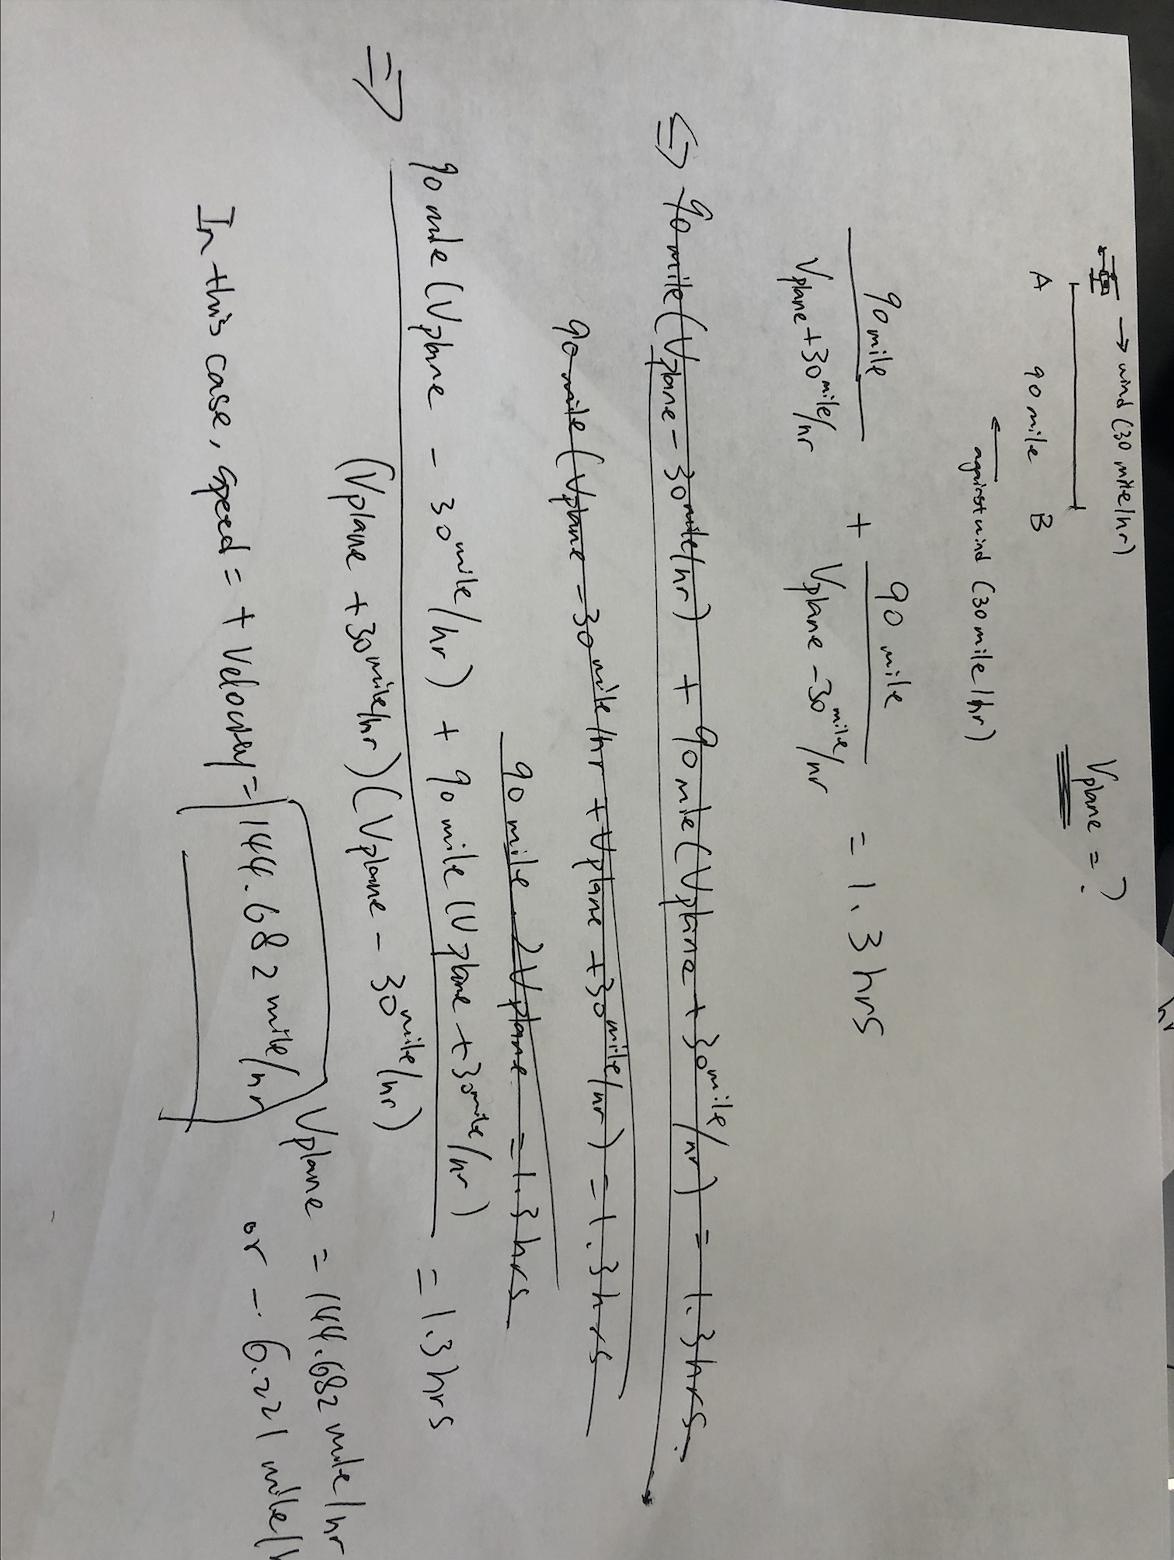 → wind (30 mile/hr)
A 90 mile B
Vplane = ?
← against wind (30 mile/hr)
90 mile / Vplane + 30 mile/hr + 90 mile / Vplane - 30 mile/hr = 1.3 hrs
⇒ 90 mile (Vplane - 30 mile/hr) + 90 mile (Vplane + 30 mile/hr) = 1.3 hrs.
90 mile (Vplane - 30 mile/hr + Vplane + 30 mile/hr) = 1.3 hrs
90 mile 2Vplane = 1.3 hrs
⇒ 90 mile (Vplane - 30 mile/hr) + 90 mile (Vplane + 30 mile/hr) / (Vplane + 30 mile/hr) (Vplane - 30 mile/hr) = 1.3 hrs
Vplane = 144.682 mile/hr
or - 6.221 mile/h
In this case, speed = + Velocity = 144.682 mile/hr